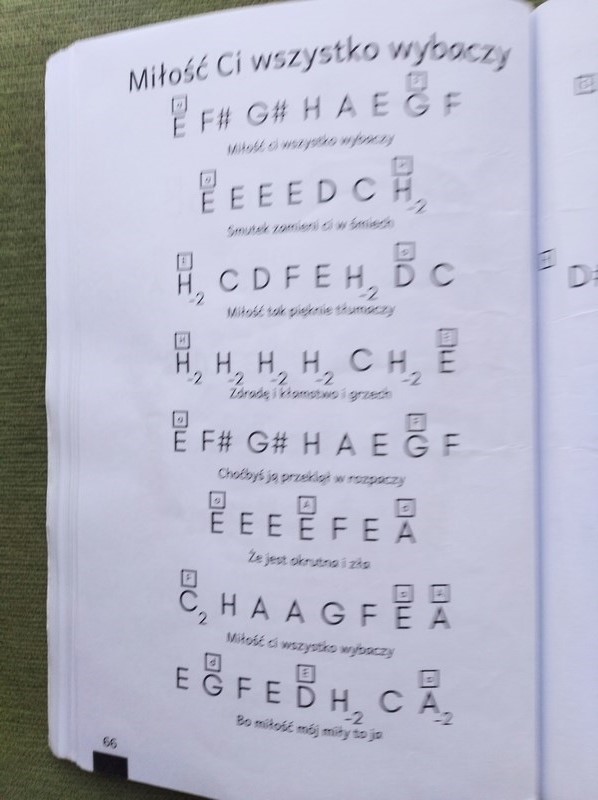 Miłość Ci wszystko wybaczy
E F# G# H A E G F
Miłość ci wszystko wybaczy
E E E E D C H₋₂
Smutek zamieni ci w śmiech
H₋₂ C D F E H₋₂ D C
Miłość tak pięknie tłumaczy
H₋₂ H₋₂ H₋₂ H₋₂ C H₋₂ E
Zdradę i kłamstwo i grzech
E F# G# H A E G F
Choćbyś ją przeklął w rozpaczy
E E E E F E A
Że jest okrutna i zła
C₂ H A A G F E A
Miłość ci wszystko wybaczy
E G F E D H₋₂ C A₋₂
Bo miłość mój miły to ja
66
D#